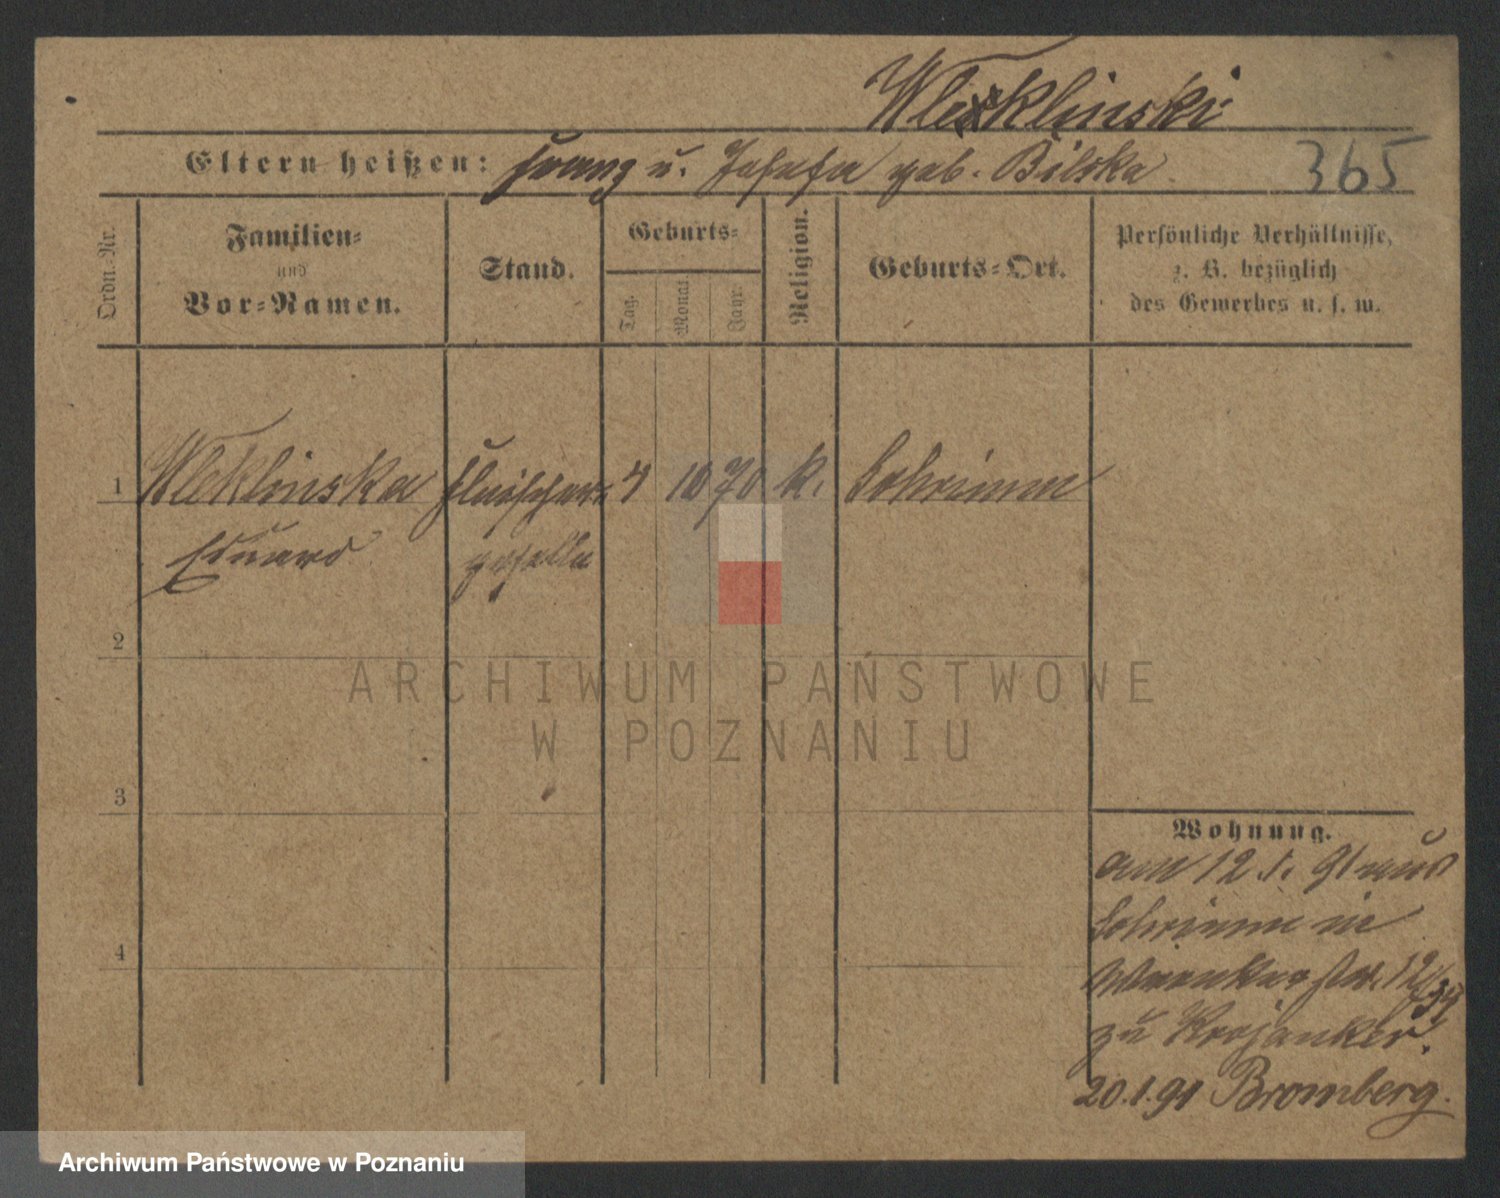 Wleklinski
Eltern heißen: Franz u. Josefa geb. Bilska.
365
Ordn.-Nr.
Familien-
und
Vor-Namen.
Stand.
Geburts-
Tag.
Monat.
Jahr.
Religion.
Geburts-Ort.
Persönliche Verhältnisse,
z. B. bezüglich
des Gewerbes u. s. w.
1 Wleklinska Fleischer 4 10 70 k. Schrimm
Eduard geselle
2
3
4
Wohnung.
am 12.1.91 aus
Schrimm in
12/39
zu Krojanker.
20.1.91 Bromberg.
ARCHIWUM PAŃSTWOWE
W POZNANIU
Archiwum Państwowe w Poznaniu